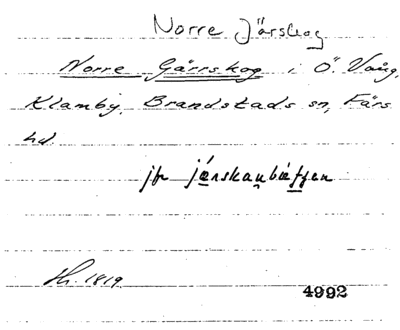 Norre Järskog
Norre Gärrskog i Ö. Vång,
Klamby, Brandstads sn, Färs
hd.
jfr järskaubäțzen
Sk. 1819
4992